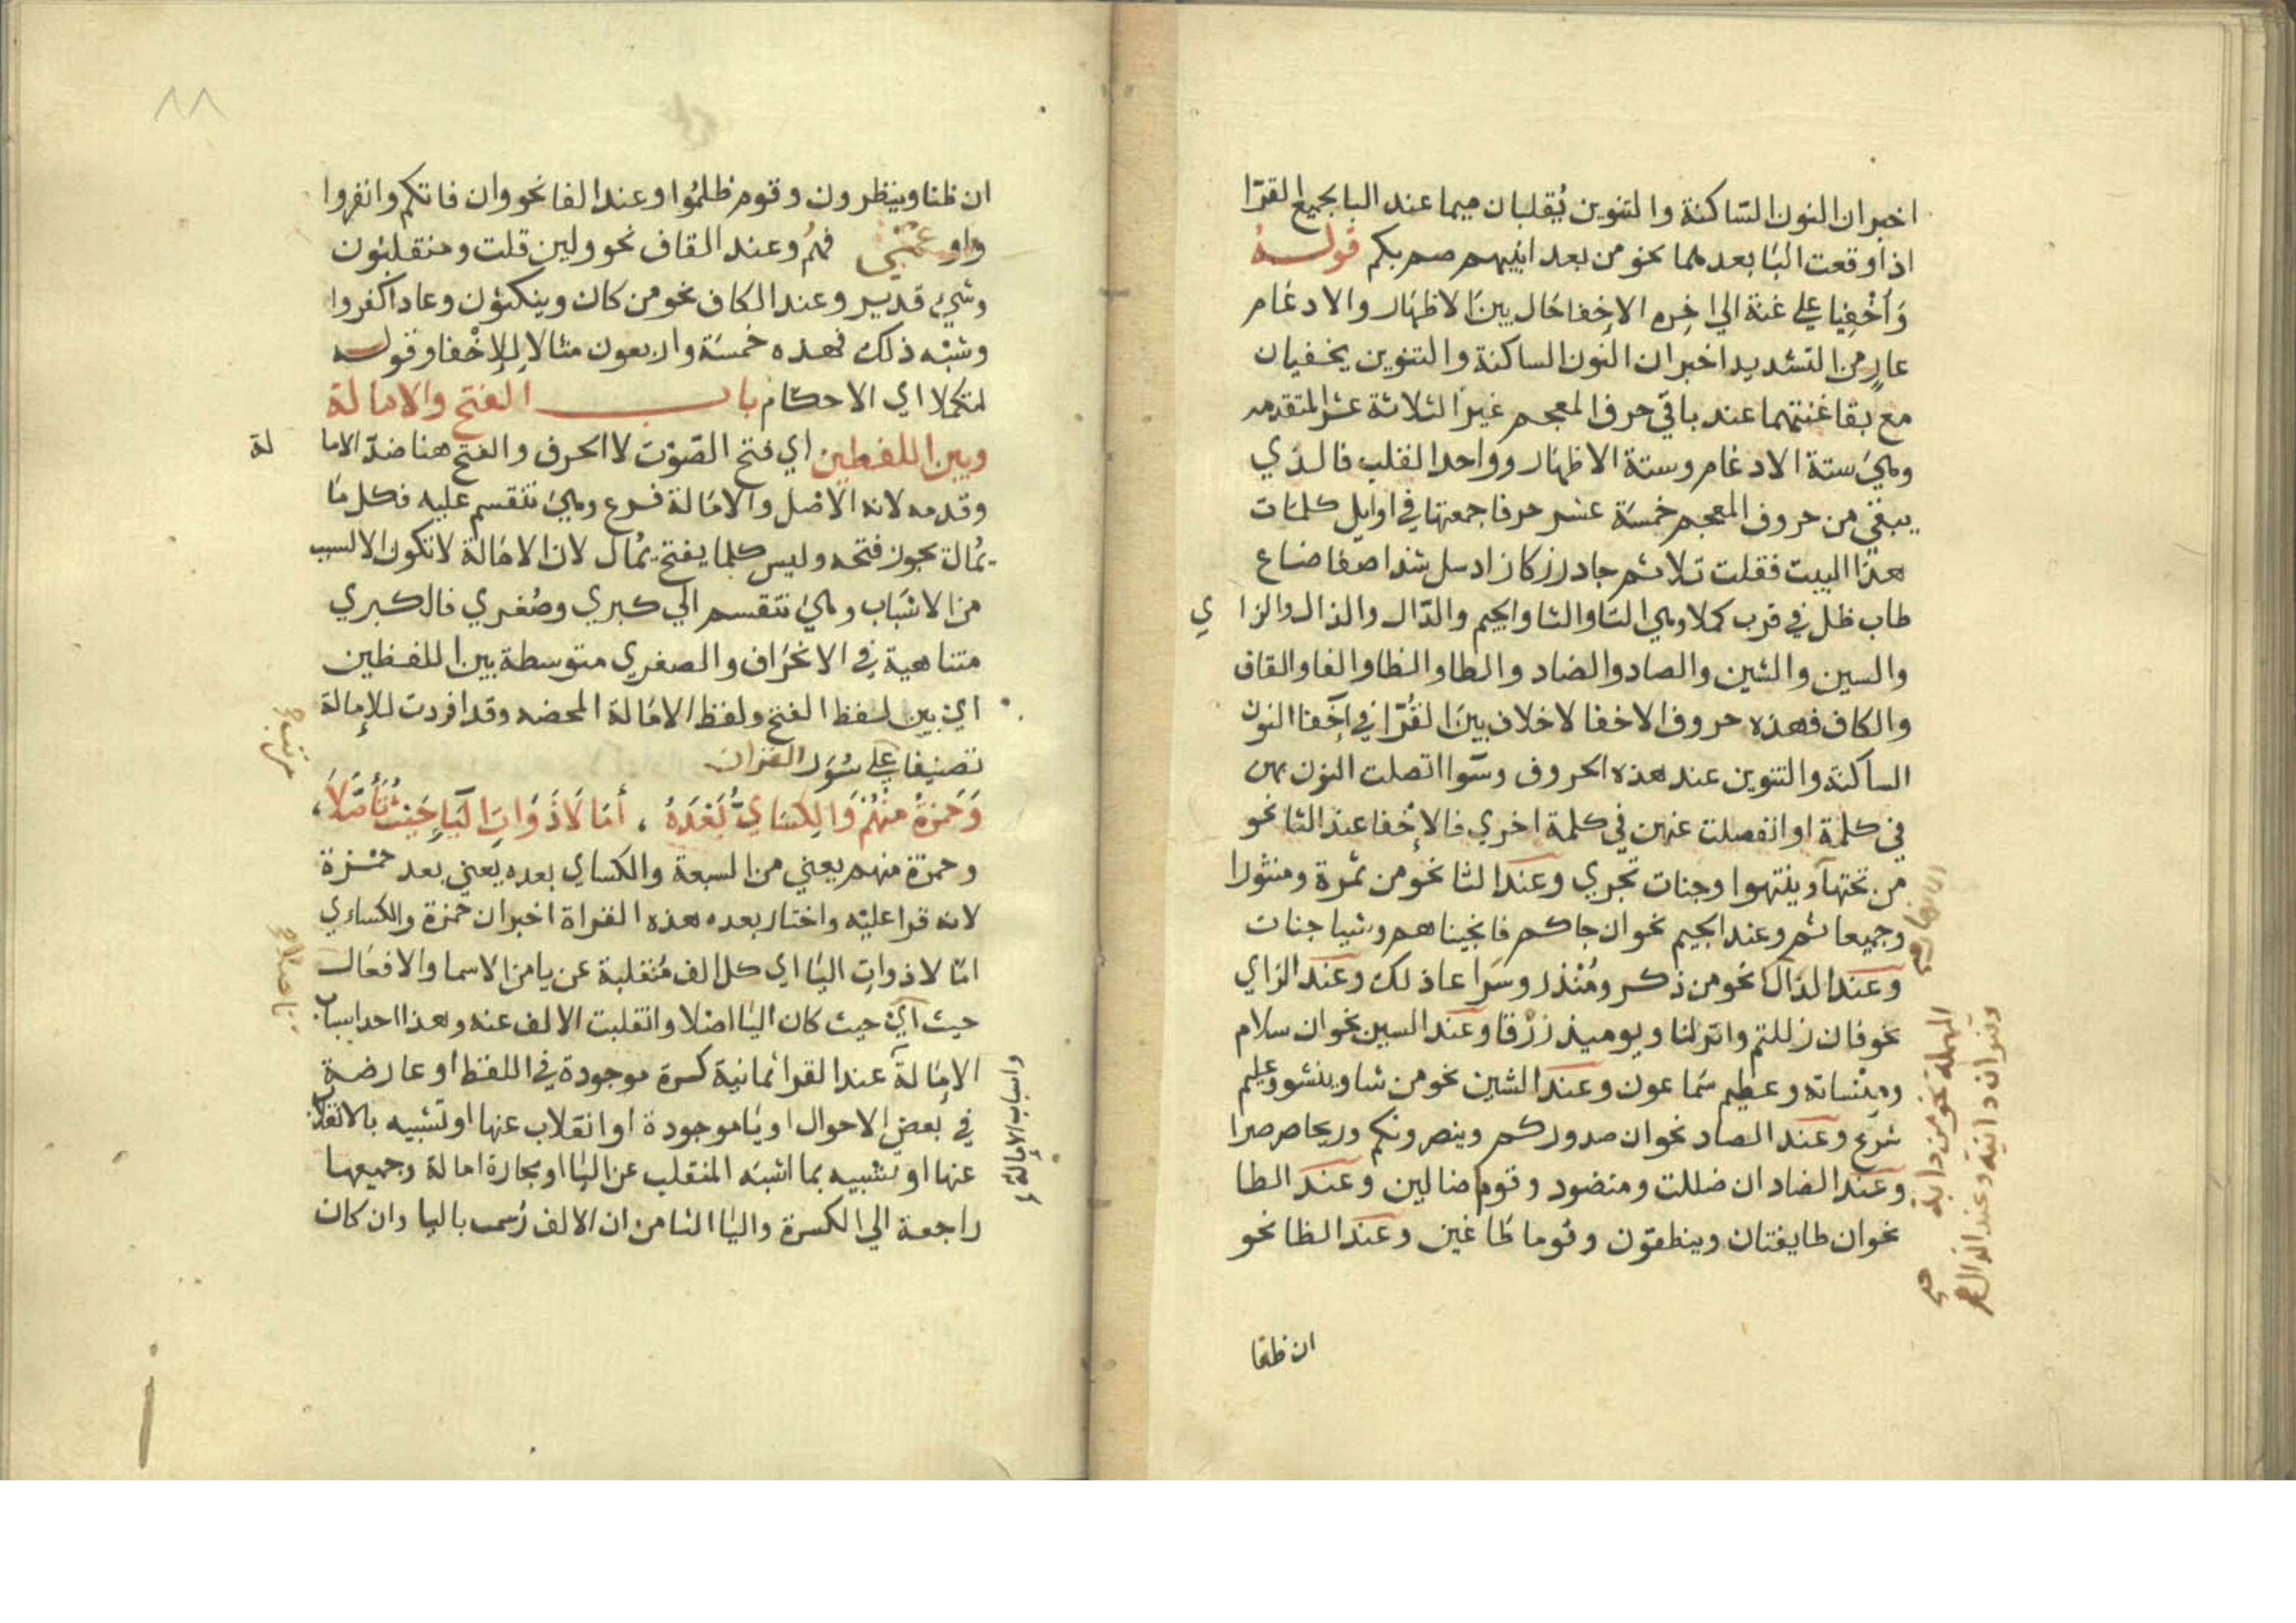 اخبر ان النون الساكنة والتنوين يُقلبان ميما عند البا بجميع القرّا
اذا وقعت البا بعدهما نحو من بعد انبيهم صم بكم قوله
وَأخْفِيا على غنة الي اخِره الاخِفا حَال بينَ الاظهَار والادغام
عارٍ من التشديد اخبر ان النون الساكنة والتنوين يخفيان
مع بقا غنتهما عند باقي حروف المعجم غير الثلاثة عشر المتقدمه
وهي ستة الادغام وستة الاظهار وواحد القلب فالذي
يبقي من حروف المعجم خمسة عشر حرفا جمعتها في اوايل كلمات
هذا البيت فقلت تلا ثم جا در زكا زاد سل شذا صفا ضاع
طاب ظل في قرب كملا وهي التا والثا والجيم والدّال والذال والزاي
والسين والشين والصاد والضاد والطا والظا والفا والقاف
والكاف فهذه حروف الاخفا لا خلاف بين القُرّا في اخفا النون
الساكنة والتنوين عند هذه الحروف وسوا اتصلت النون بهن
في كلمة او انفصلت عنهن في كلمة اخري فالاخْفا عند التا نحو
من تحتها وينتهوا وجنات تجري وعند الثا نحو من ثمرة ومنثورا
وجميعا ثم وعند الجيم نحو ان جاكم فانجيناهم وشيا جنات
وعند الذال نحو من ذكر ومُنْذر وسَراعا ذلك وعند الزاي
نحو فان زللتم وانزلنا ويوميذ زرْقا وعند السين نحو ان سلام
ومِنْساته وعظيم سَماعون وعند الشين نحو من شا وينشو وعليم
شرع وعند الصاد نحو ان صدوركم وينصرونكم وريحا صرصرا
وعند الضاد ان ضللت ومنضود وقوما ضالين وعند الطا
نحو ان طايفتان وينطقون وقوما طَاغين وعند الظا نحو
المهملة نحو من دابة
وقنوان دانية وعند الذال
ان ظنا
ان ظنا وينظرون وقوم ظلمُوا وعند الفا نحو وان فاتكم وانفروا
فهُم وعند القاف نحو ولين قلت ومنقلبون
وشيء قدير وعند الكاف نحو من كان وينكثون وعادا كفروا
وشبْه ذلك فهذه خمسَة واربعون مثالا للاِخْفا وقوله
لتكملا اي الاحكام باب الفتح والامالة
وبين اللفظين اي فتح الصّوْت لا الحرف والفتح هنا ضدّ الامالة
وقدمه لانه الاصْل والامَالة فرع وهي تنقسم عليه فكل مَا
يمُالَ يجوز فتحه وليس كلما يفتح يمُال لان الامَالة لا تكون الا لسبب
من الاسْبَاب وهي تنقسم الي كبري وصُغري فالكبري
متناهية في الانحْرَاف والصغري متوسطة بين اللفظين
اي بين لفظ الفتح ولفظ الامَالة المحضه وقد افردت للاِمالة
تصنيفا على سُوَر القران
وَحَمزةُ مِنْهُمْ وَالكِسَايُّ بَعْدَهُ ، أمَا لَا ذَوَاتِ الْيَاءِ حَيْثُ تَأَصَّلَا ،
وحمزة منهم يعني من السبعة والكساي بعده يعني بعد حمزة
لانه قرا عليْه واختار بعده هذه القراة اخبر ان حمزة والكساءي
امَالا ذوات اليا اي كل الف مُنقلبة عن يا من الاسما والافعَال
حيث اي حيث كان اليا اصْلا وانقلبت الالف عنه وهذا احد اسباب
الامِالة عند القرا ثمانية كسرة موجودة في اللفظ او عارضة
في بعض الاحوال او يا موجودة او انقلاب عنها او تشبيه بالانقلاب
عنها او تشبيه بما اشبَه المنقلب عن اليا او مجاورة امالة وجميعها
راجعة الي الكسرة واليا الثامن ان الالف رُسمت باليا وان كان
واسباب الامالة